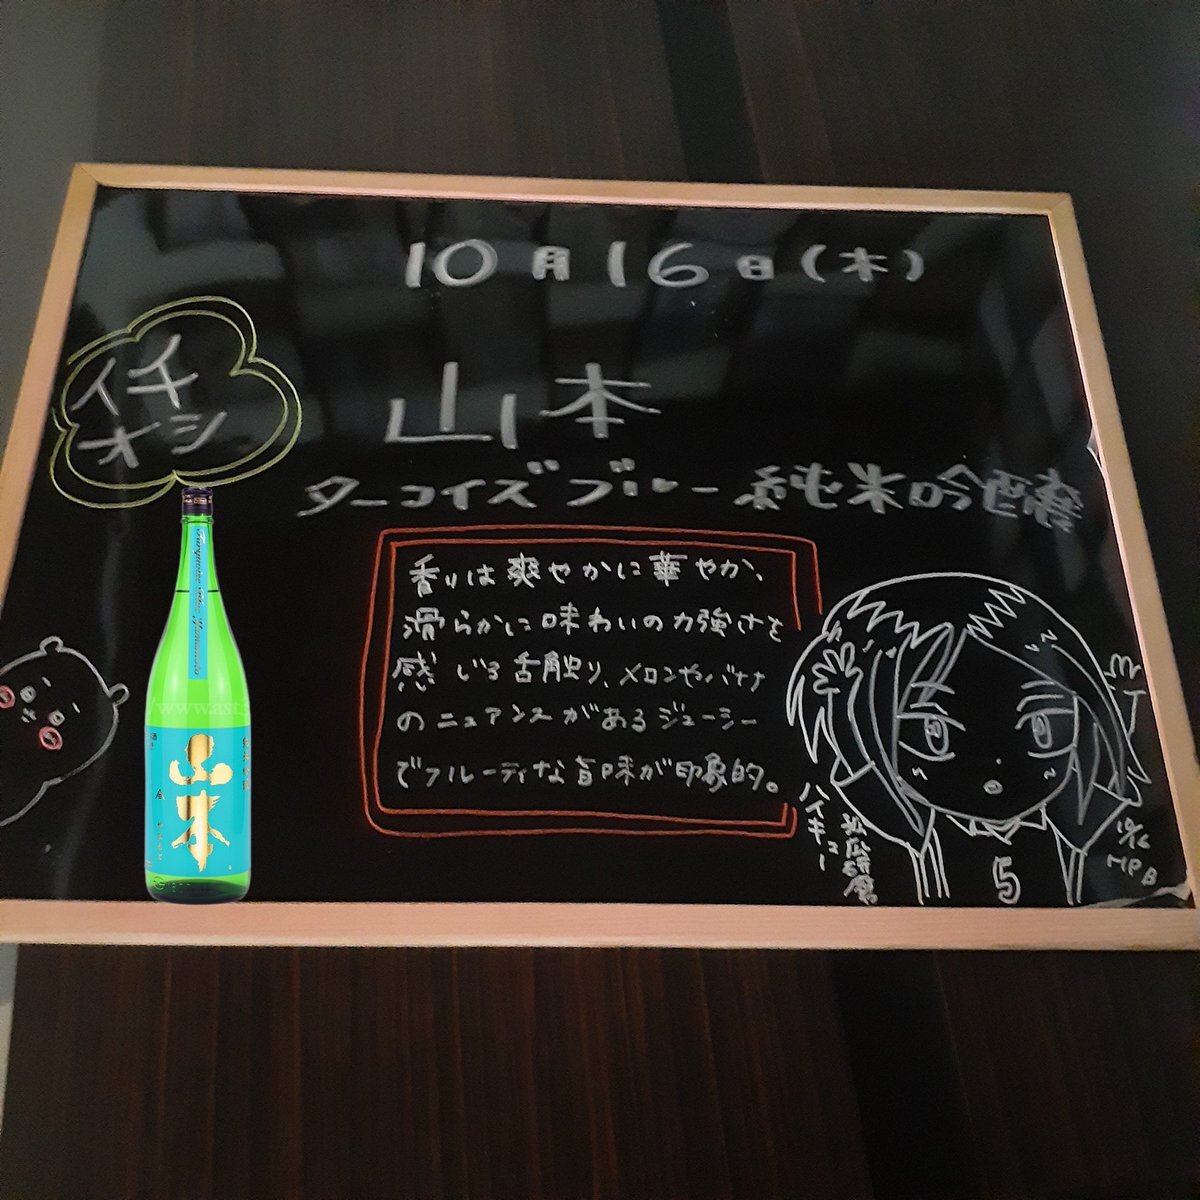 10月16日(木)
イチ
オシ
山本
ターコイズブルー 純米吟醸
香りは爽やかに華やか、
滑らかに味わいの力強さを
感じる舌触り、メロンやバナナ
のニュアンスがあるジューシー
でフルーティな旨味が印象的。
ハイキュー
孤爪研磨
5
10/16
HPB
www.ast
山本